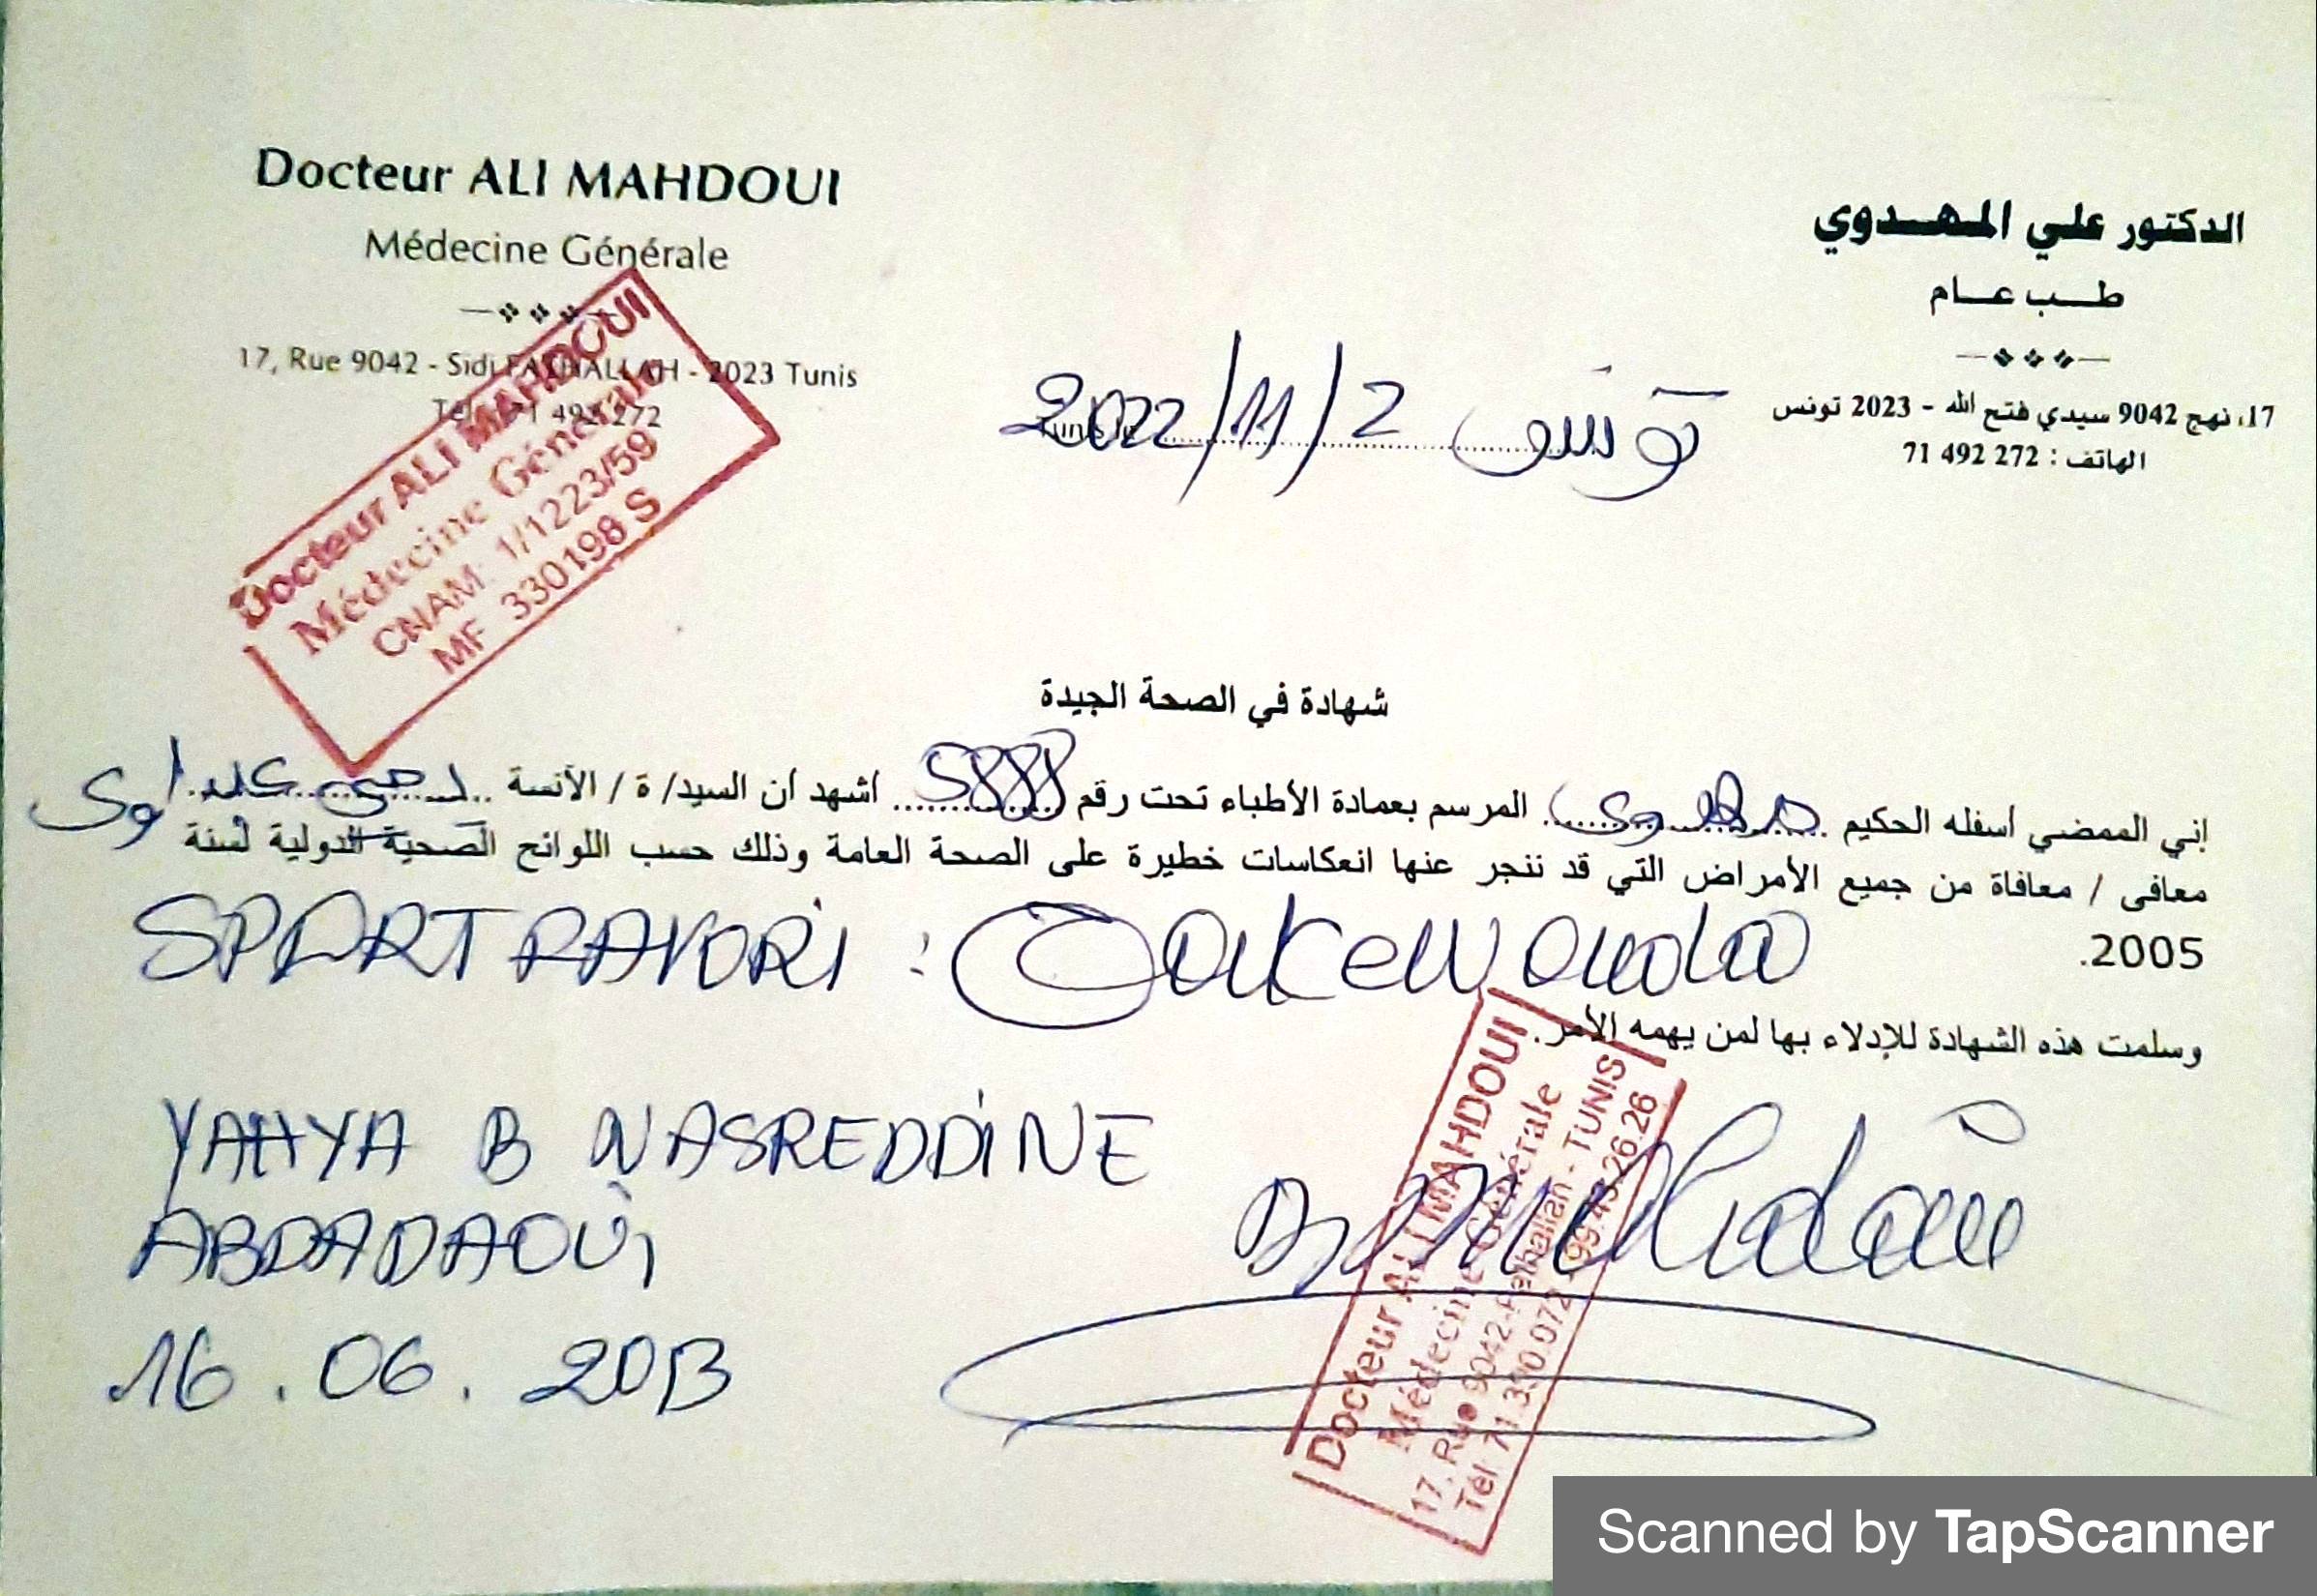 Docteur ALI MAHDOUI
Médecine Générale
17, Rue 9042 - Sidi FATHALLAH - 2023 Tunis
Tél : 71 492 272
الدكتور علي المهدوي
طب عام
17، نهج 9042 سيدي فتح الله - 2023 تونس
الهاتف : 272 492 71
تونس 2022/11/2
Docteur ALI MAHDOUI
Médecine Générale
CNAM: 1/1223/59
MF 330198 S
شهادة في الصحة الجيدة
إني الممضي أسفله الحكيم المرسم بعمادة الأطباء تحت رقم أشهد أن السيد/ ة / الآنسة
معافى / معافاة من جميع الأمراض التي قد تنجر عنها انعكاسات خطيرة على الصحة العامة وذلك حسب اللوائح الصحية الدولية لسنة
2005.
SPORT FAVORI :
وسلمت هذه الشهادة للإدلاء بها لمن يهمه الأمر.
YAHYA B NASREDDINE
ABDADAOUI
16.06.2013
Docteur ALI MAHDOUI
Médecine Générale
17, Rue 9042-Fethallah - TUNIS
Scanned by TapScanner